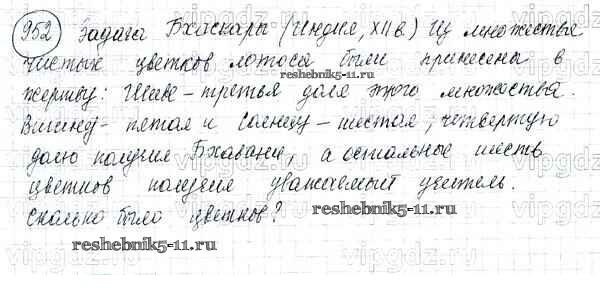 952 Задача Бхаскары (Индия, XII в.) Из множества
чистых цветков лотоса были принесены в
жертву: Шиве - третья доля этого множества.
Вишну - пятая и Солнцу - шестая, четвертую
долю получил Бхавани, а остальные шесть
цветков получил уважаемый учитель.
Сколько было цветков?
reshebnik5-11.ru
reshebnik5-11.ru
reshebnik5-11.ru
vipgdz